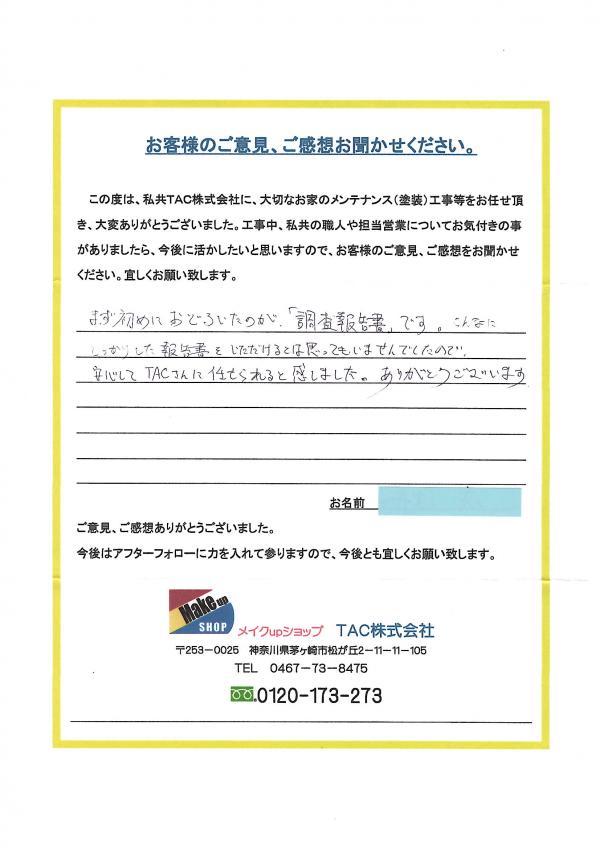 お客様のご意見、ご感想お聞かせください。
この度は、私共TAC株式会社に、大切なお家のメンテナンス（塗装）工事等をお任せ頂
き、大変ありがとうございました。工事中、私共の職人や担当営業についてお気付きの事
がありましたら、今後に活かしたいと思いますので、お客様のご意見、ご感想をお聞かせ
ください。宜しくお願い致します。
まず初めにおどろいたのが、「調査報告書」です。こんなに
しっかりした報告書をいただけるとは思ってもいませんでしたので、
安心してTACさんに任せられると感じました。ありがとうございます
お名前
ご意見、ご感想ありがとうございました。
今後はアフターフォローに力を入れて参りますので、今後とも宜しくお願い致します。
Make up
SHOP
メイクupショップ TAC株式会社
〒253-0025 神奈川県茅ヶ崎市松が丘2-11-11-105
TEL 0467-73-8475
0120-173-273